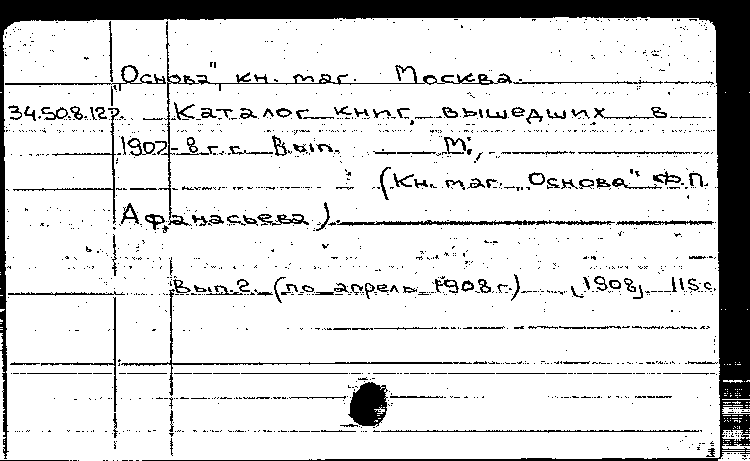 „Основа", кн. маг. Москва.
34.50.8.187. Каталог книг, вышедших в
1907-8 г.г. Вып. М.,
(Кн. маг. „Основа" Ф.П.
Афанасьева).
Вып.2. (по апрель 1908 г.) [1908] 115 с.